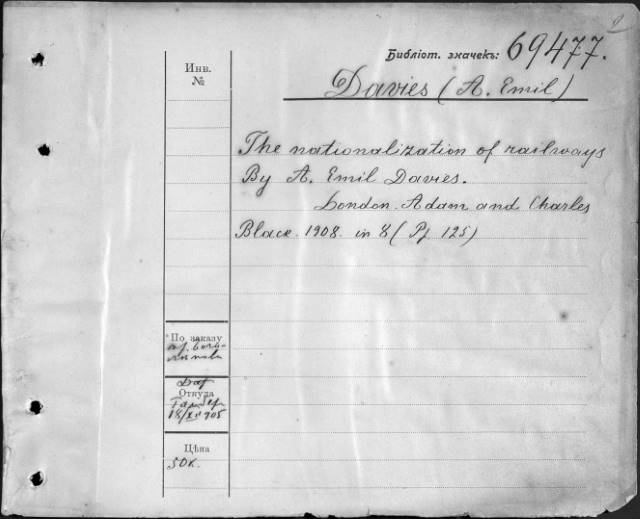 Библіот. значекъ: 69477.
Davies (A. Emil)
Инв.
№
The nationalization of railways
By A. Emil Davies.
London. Adam and Charles
Blace. 1908. in 8 (Pf 125)
По заказу
Откуда
Цѣна
50к.